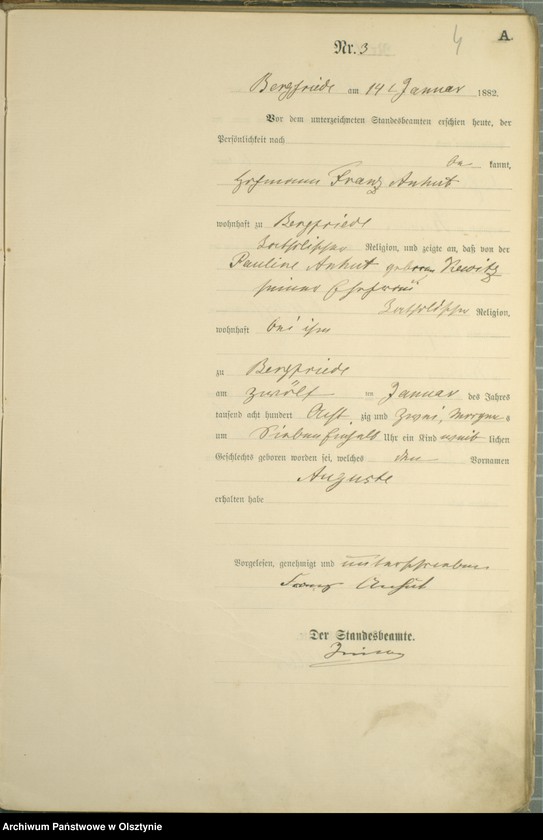 4 A.
Nr. 3
Bergfriede am 14t Januar 1882.
Vor dem unterzeichneten Standesbeamten erschien heute, der
Persönlichkeit nach
be kannt,
Hofmann Franz Anhut
wohnhaft zu Bergfriede
katholischer Religion, und zeigte an, daß von der
Pauline Anhut geboren Kewitz
seiner Ehefrau
katholischer Religion,
wohnhaft bei ihm
zu Bergfriede
am zwölf ten Januar des Jahres
tausend acht hundert Acht zig und zwei, Morgens
um Sieben einhalb Uhr ein Kind weib lichen
Geschlechts geboren worden sei, welches den Vornamen
Auguste
erhalten habe
Vorgelesen, genehmigt und unterschrieben
Franz Anhut
Der Standesbeamte.
Archiwum Państwowe w Olsztynie